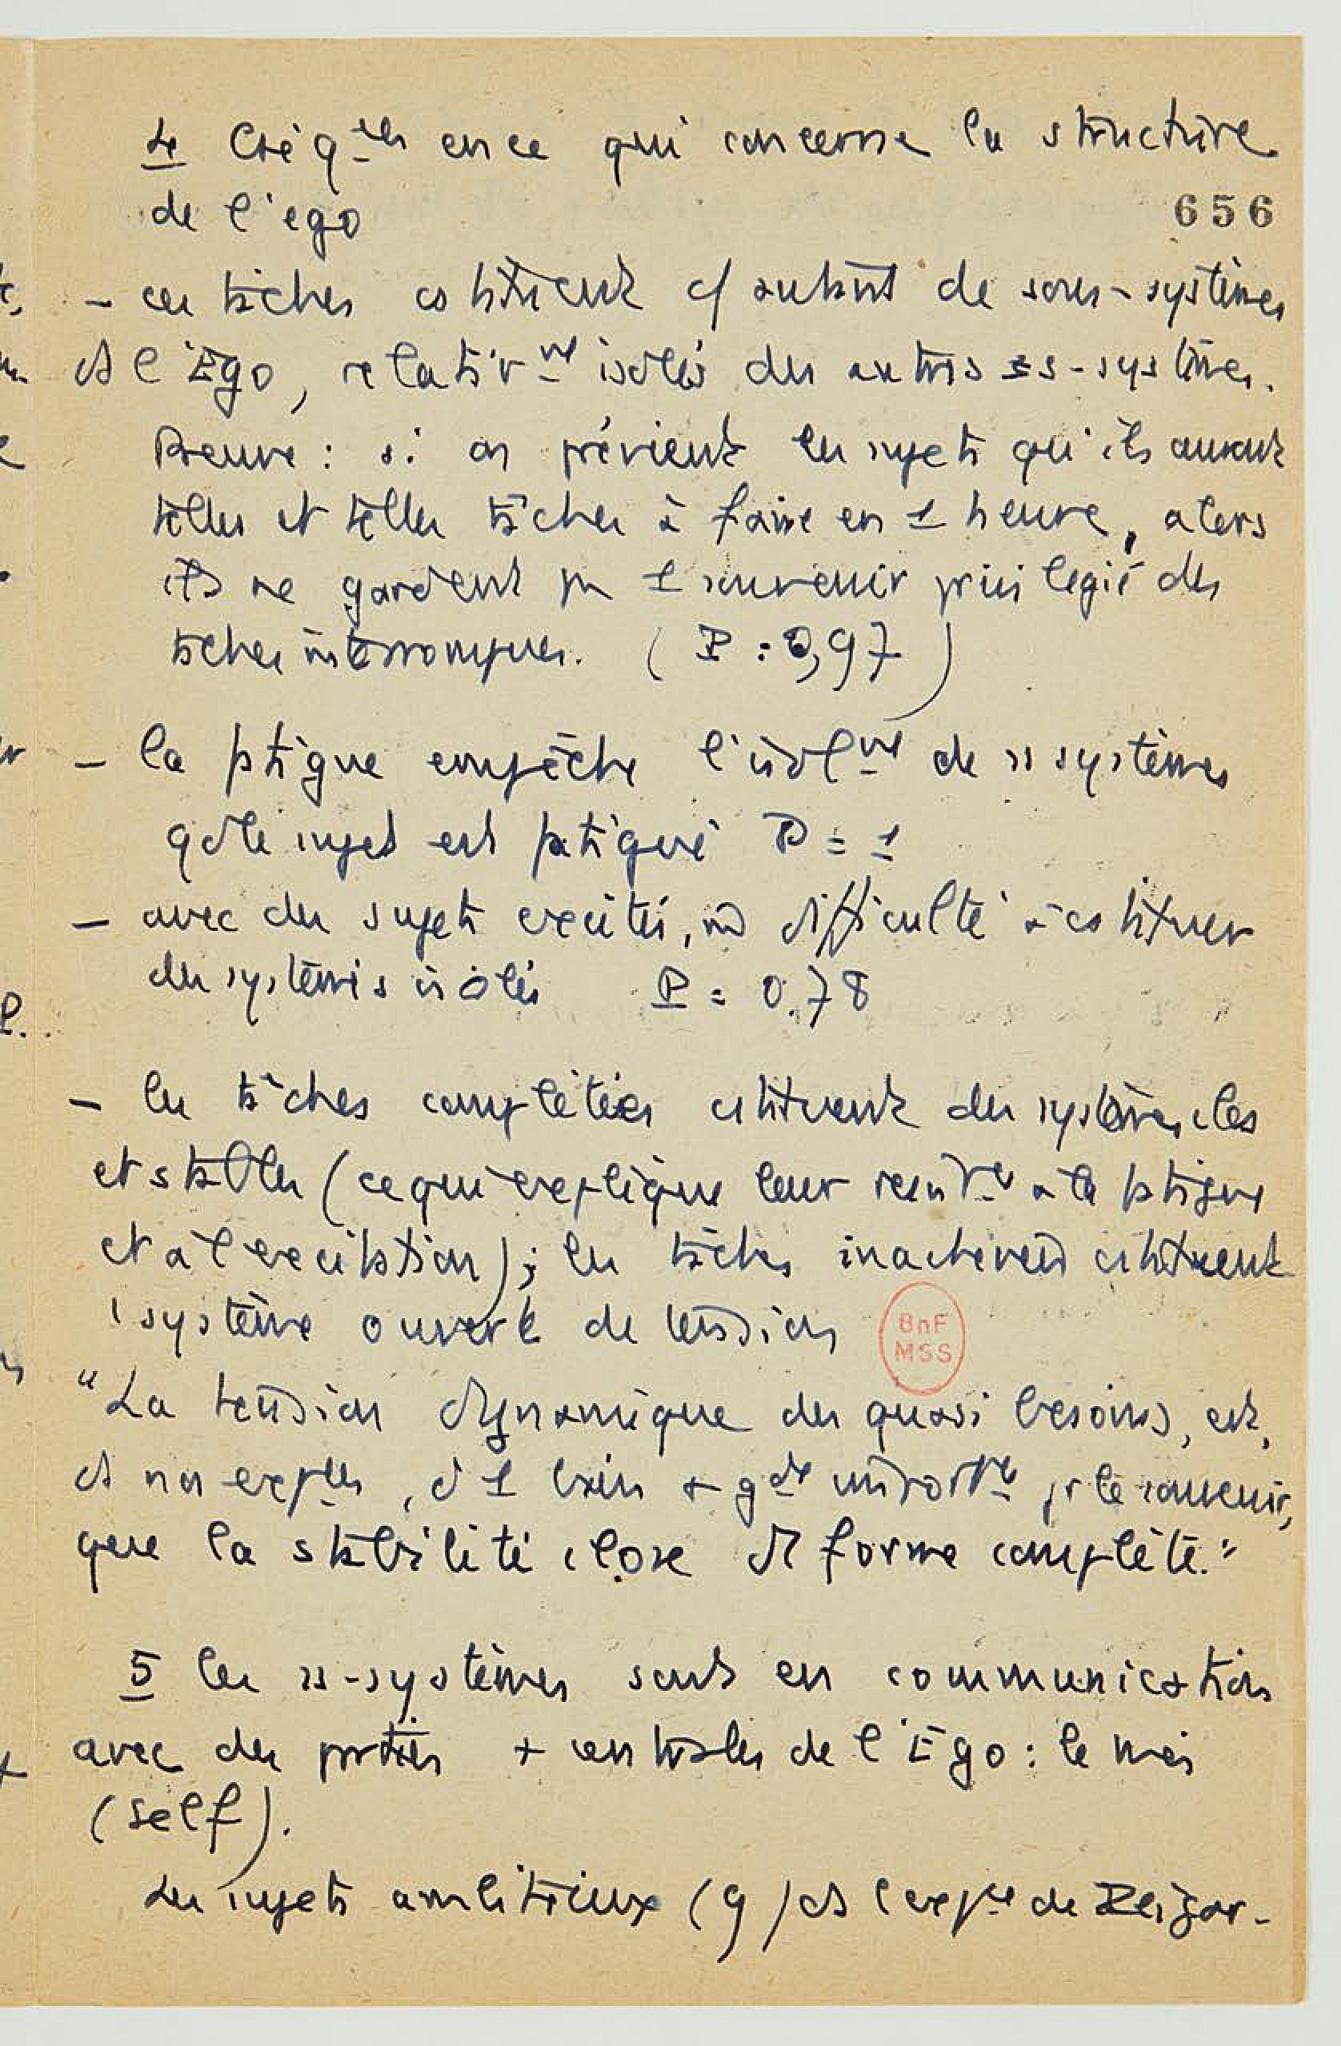 4 Cséq_ces en ce qui concerne la structure
de l'ego
656
- ces tâches cstituent c/ autant de sous-systèmes
ds l'Ego, relativ_mt isolés des autres ss-systèmes.
Preuve : si on prévient les sujets qu'ils auront
telles et telles tâches à faire en 1 heure, alors
ils ne gardent pas 1 souvenir privilégié des
tâches interrompues. (P = 0,97)
- la ftigue empêche l'isolmt de ss systèmes
qd le sujet est fatigué P = 1
- avec des sujets excités, difficulté à cstituer
des systèmes isolés P = 0.78
- les tâches complétées cstituent des systèmes clos
et stables (ce qui explique leur résistce à la ftigue
et à l'excitation) ; les tâches inachevées cstituent
1 système ouvert de tension
BnF
MSS
"La tension dynamique des quasi besoins, est,
ds nos expces, d'1 bien + gde importce pr le souvenir,
que la stabilité close d'1 forme complète."
5 les ss-systèmes sont en communication
avec des parties + centrales de l'Ego : le moi
(self).
Les sujets ambitieux (q/ ds l'expce de Zeigar-